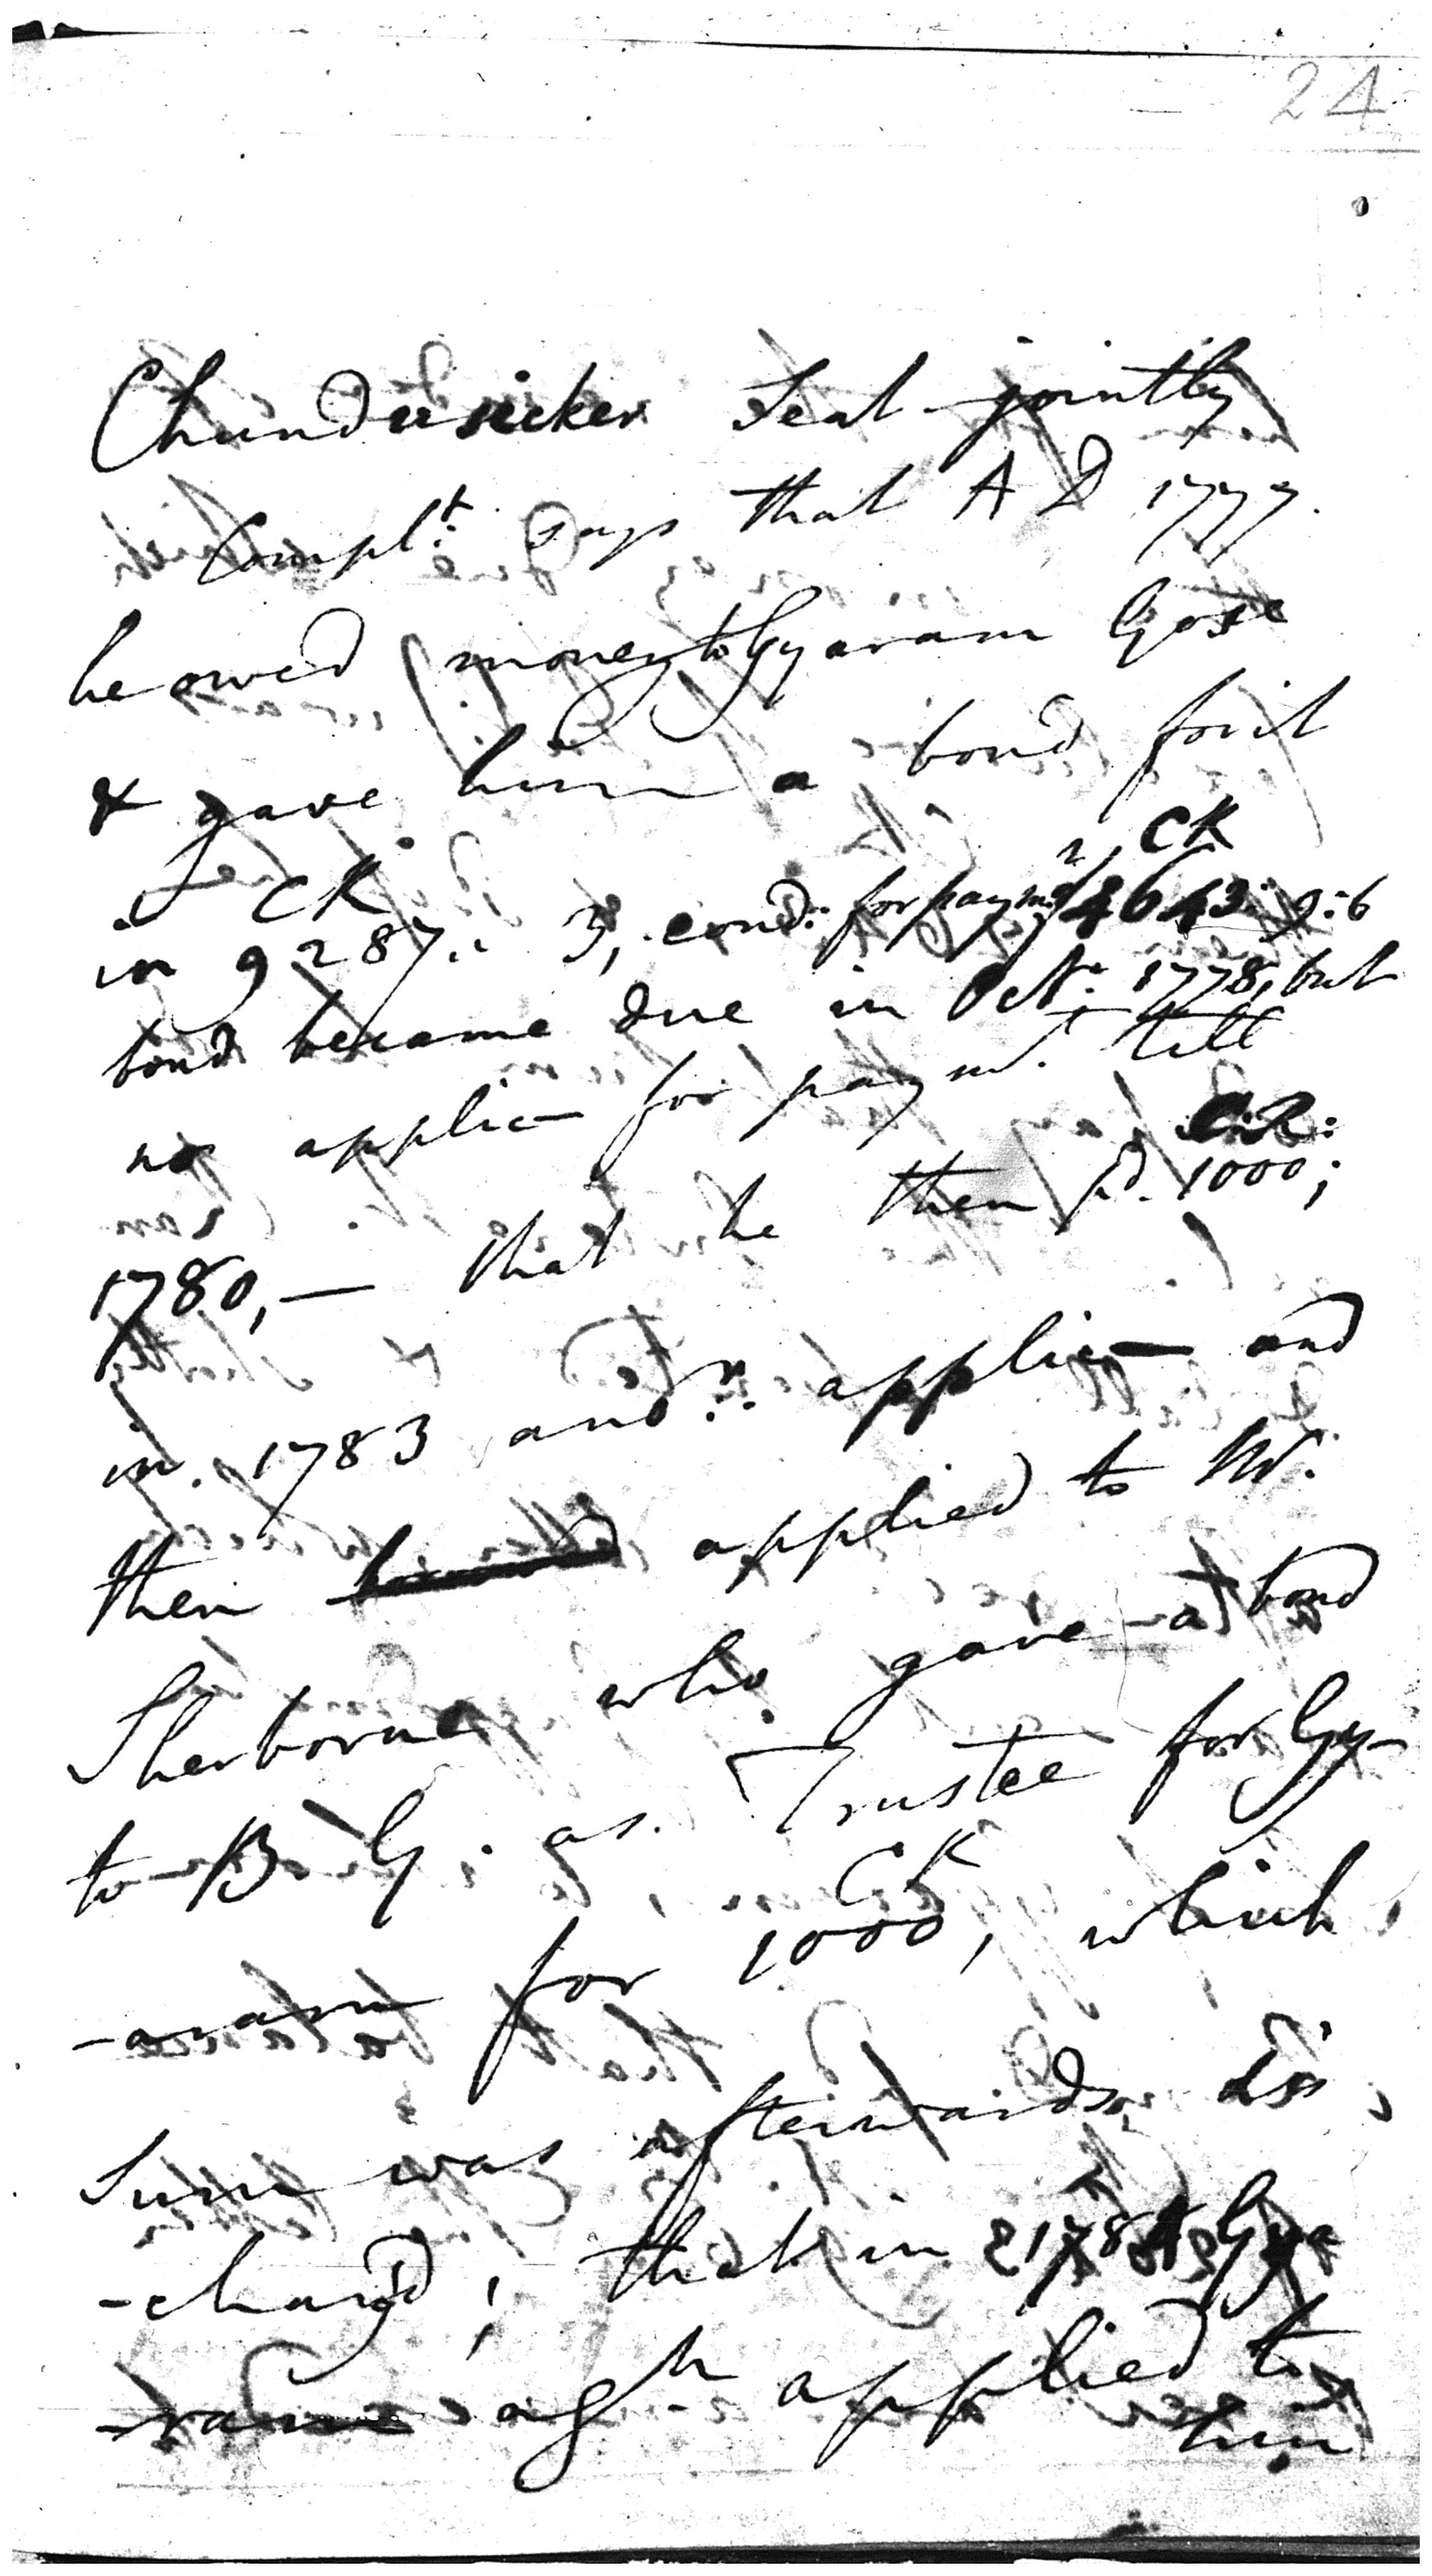 24
Chundersicker Seal jointly
Compl.t says that A D 1777.
he owed money to Gyaram Gose
& gave him a bond for it
CK CK
in 9287.. 3, cond: for paym.t 4643: 9:6
bond became due in Oct.r 1778, but
no applic— for paym.t till
C.R:
1780,— that he then pd. 1000;
in. 1783 ano.r applic— and
then applied to Mr.
Sherborne who gave a bond
to B G. as. Trustee for Gy-
CK
-aram for 1000, which
Sum was afterwards dis
-charg'd; that in 1784 Gya
-ram ag.n applied to
him